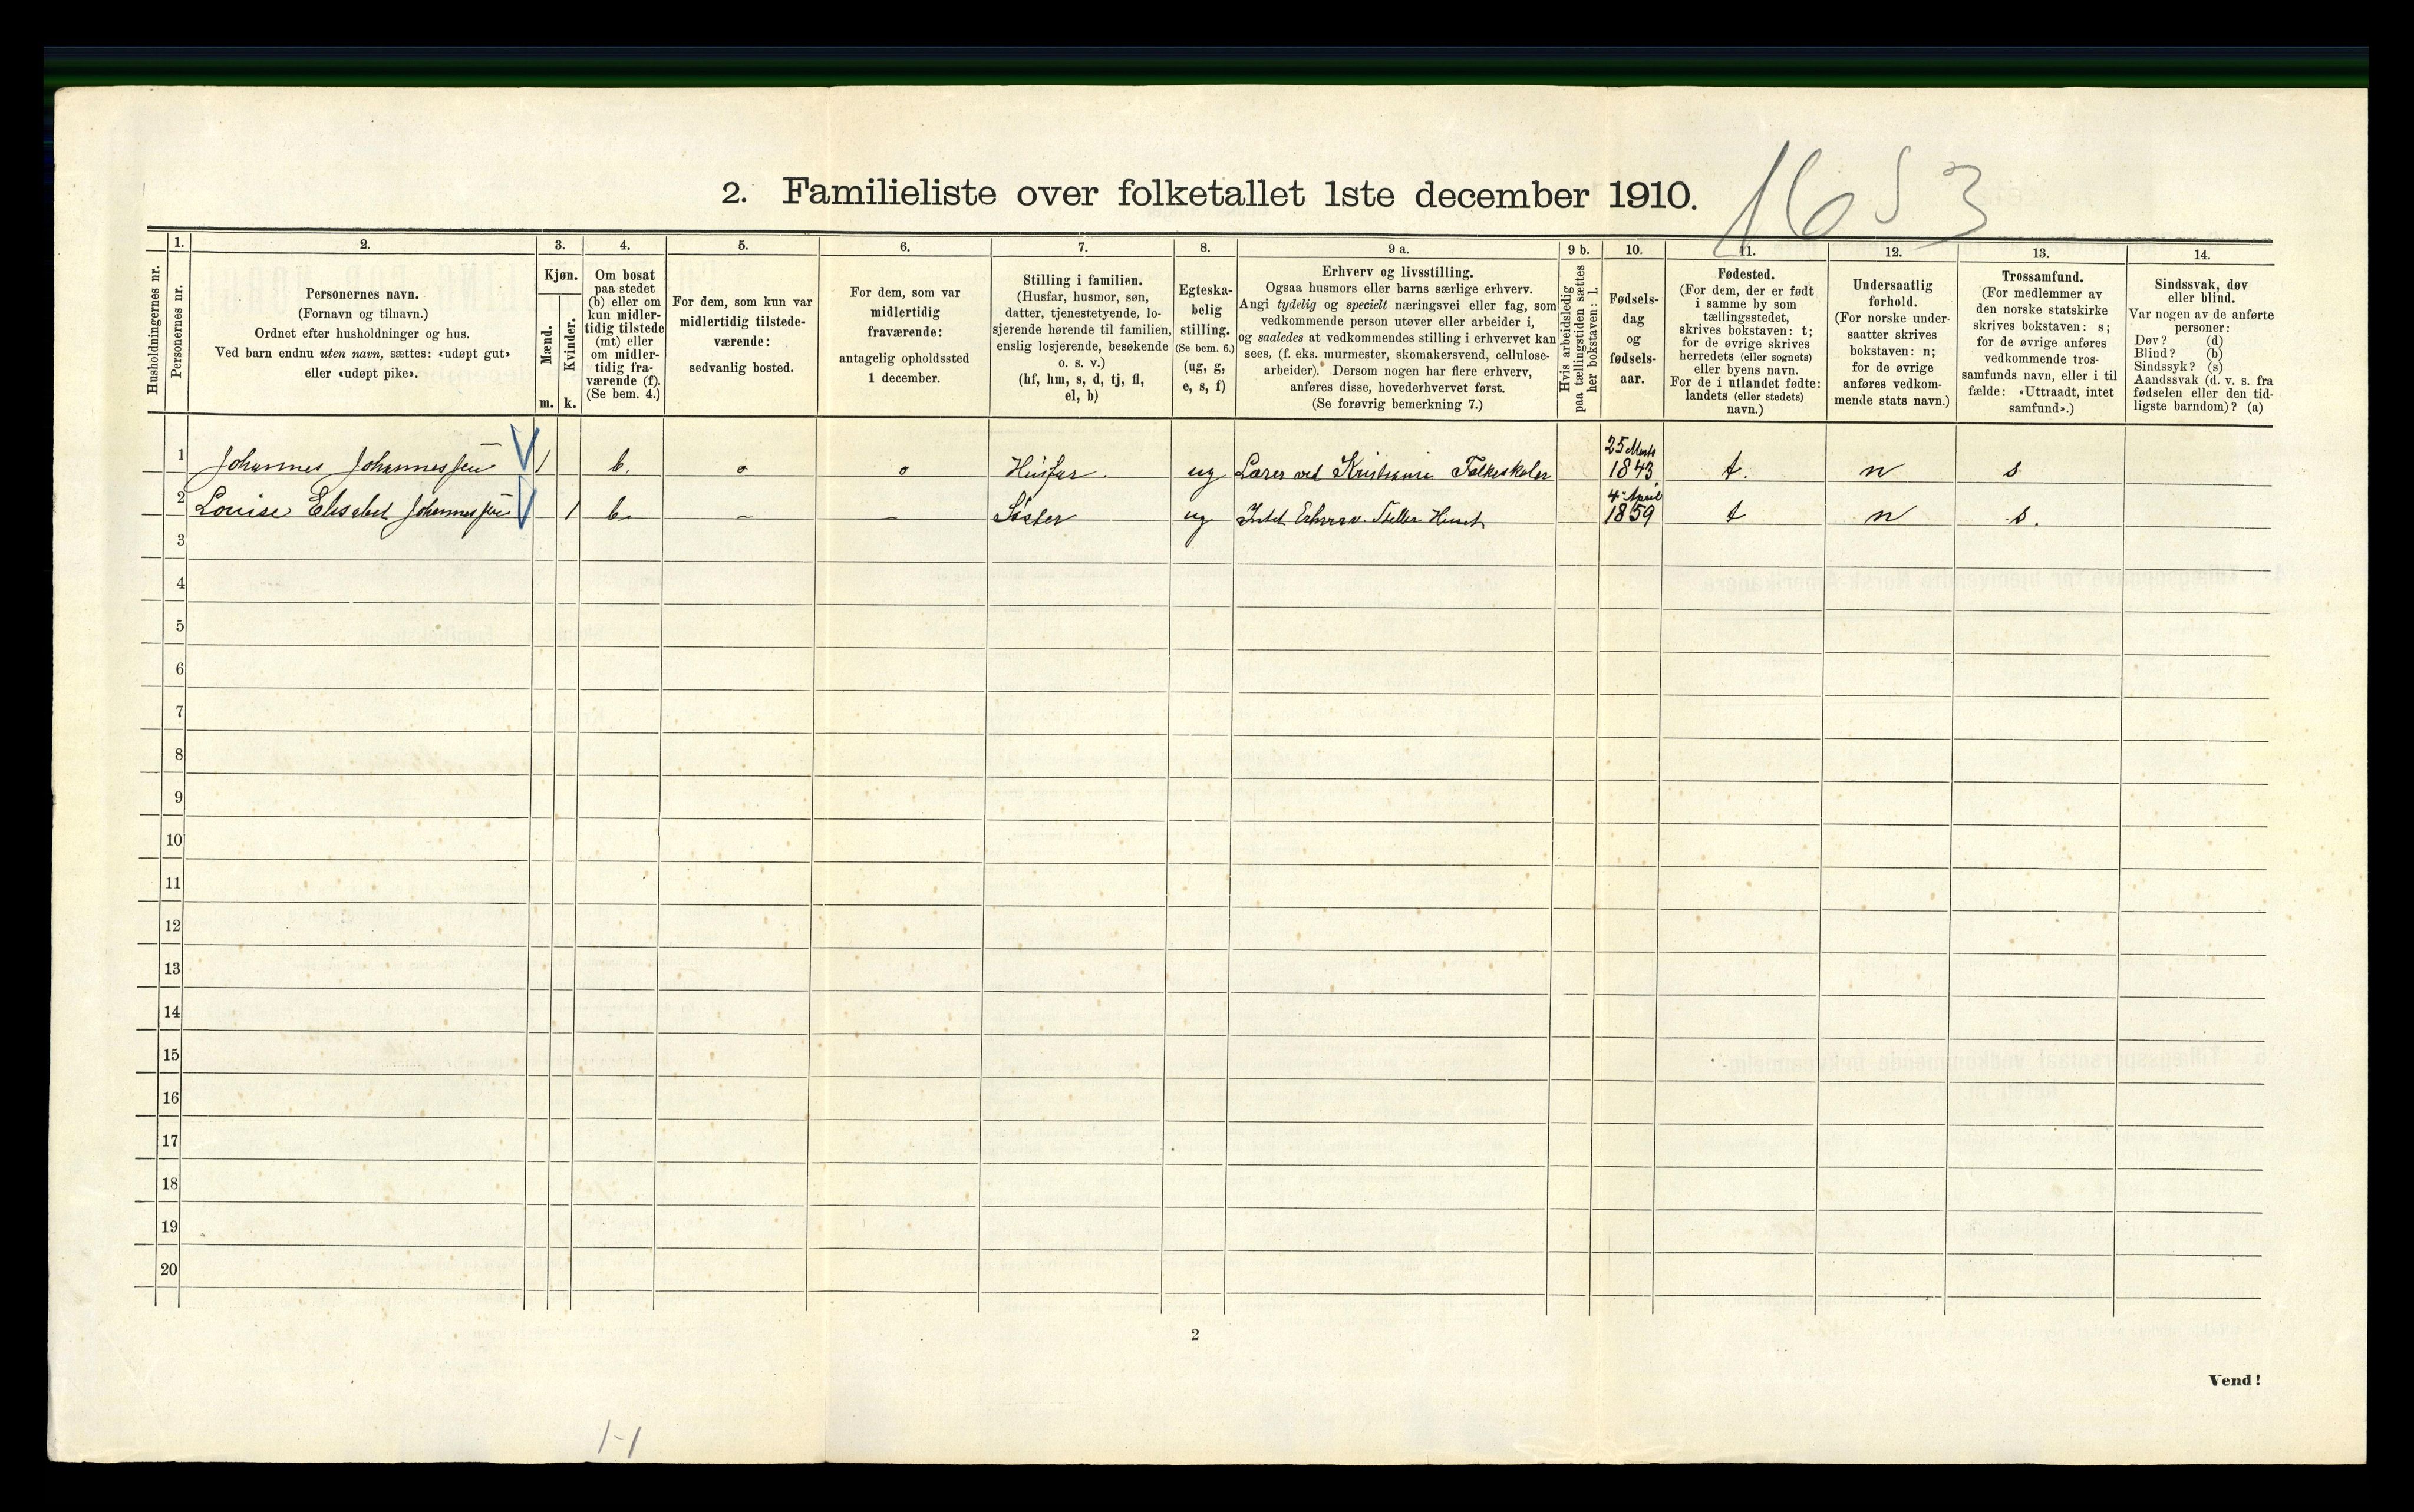 2. Familieliste over folketallet 1ste december 1910.
1653
Husholdningernes nr.
1.
Personernes nr.
2.
Personernes navn.
(Fornavn og tilnavn.)
Ordnet efter husholdninger og hus.
Ved barn endnu uten navn, sættes: «udøpt gut»
eller «udøpt pike».
3.
Kjøn.
Mænd.
m.
Kvinder.
k.
4.
Om bosat
paa stedet
(b) eller om
kun midler-
tidig tilstede
(mt) eller
om midler-
tidig fra-
værende (f).
(Se bem. 4.)
5.
For dem, som kun var
midlertidig tilstede-
værende:
sedvanlig bosted.
6.
For dem, som var
midlertidig
fraværende:
antagelig opholdssted
1 december.
7.
Stilling i familien.
(Husfar, husmor, søn,
datter, tjenestetyende, lo-
sjerende hørende til familien,
enslig losjerende, besøkende
o. s. v.)
(hf, hm, s, d, tj, fl,
el, b)
8.
Egteska-
belig
stilling.
(Se bem. 6.)
(ug, g,
e, s, f)
9 a.
Erhverv og livsstilling.
Ogsaa husmors eller barns særlige erhverv.
Angi tydelig og specielt næringsvei eller fag, som
vedkommende person utøver eller arbeider i,
og saaledes at vedkommendes stilling i erhvervet kan
sees, (f. eks. murmester, skomakersvend, cellulose-
arbeider). Dersom nogen har flere erhverv,
anføres disse, hovederhvervet først.
(Se forøvrig bemerkning 7.)
9 b.
Hvis arbeidsledig
paa tællingstiden sættes
her bokstaven: l.
10.
Fødsels-
dag
og
fødsels-
aar.
11.
Fødested.
(For dem, der er født
i samme by som
tællingsstedet,
skrives bokstaven: t;
for de øvrige skrives
herredets (eller sognets)
eller byens navn.
For de i utlandet fødte:
landets (eller stedets)
navn.)
12.
Undersaatlig
forhold.
(For norske under-
saatter skrives
bokstaven: n;
for de øvrige
anføres vedkom-
mende stats navn.)
13.
Trossamfund.
(For medlemmer av
den norske statskirke
skrives bokstaven: s;
for de øvrige anføres
vedkommende tros-
samfunds navn, eller i til
fælde: «Uttraadt, intet
samfund».)
14.
Sindssvak, døv
eller blind.
Var nogen av de anførte
personer:
Døv? (d)
Blind? (b)
Sindssyk? (s)
Aandssvak (d. v. s. fra
fødselen eller den tid-
ligste barndom)? (a)
1 Johannes Johannessen 1 b. o o Husfar. ug Lærer ved Kristiania Folkeskoler 25 Marts 1843 t. n s
2 Louise Elisabet Johannessen 1 b. – – Søster ug Intet Erhverv. Steller Huset 4 April 1859 t n s.
3
4
5
6
7
8
9
10
11
12
13
14
15
16
17
18
19
20
2
Vend!
1-1